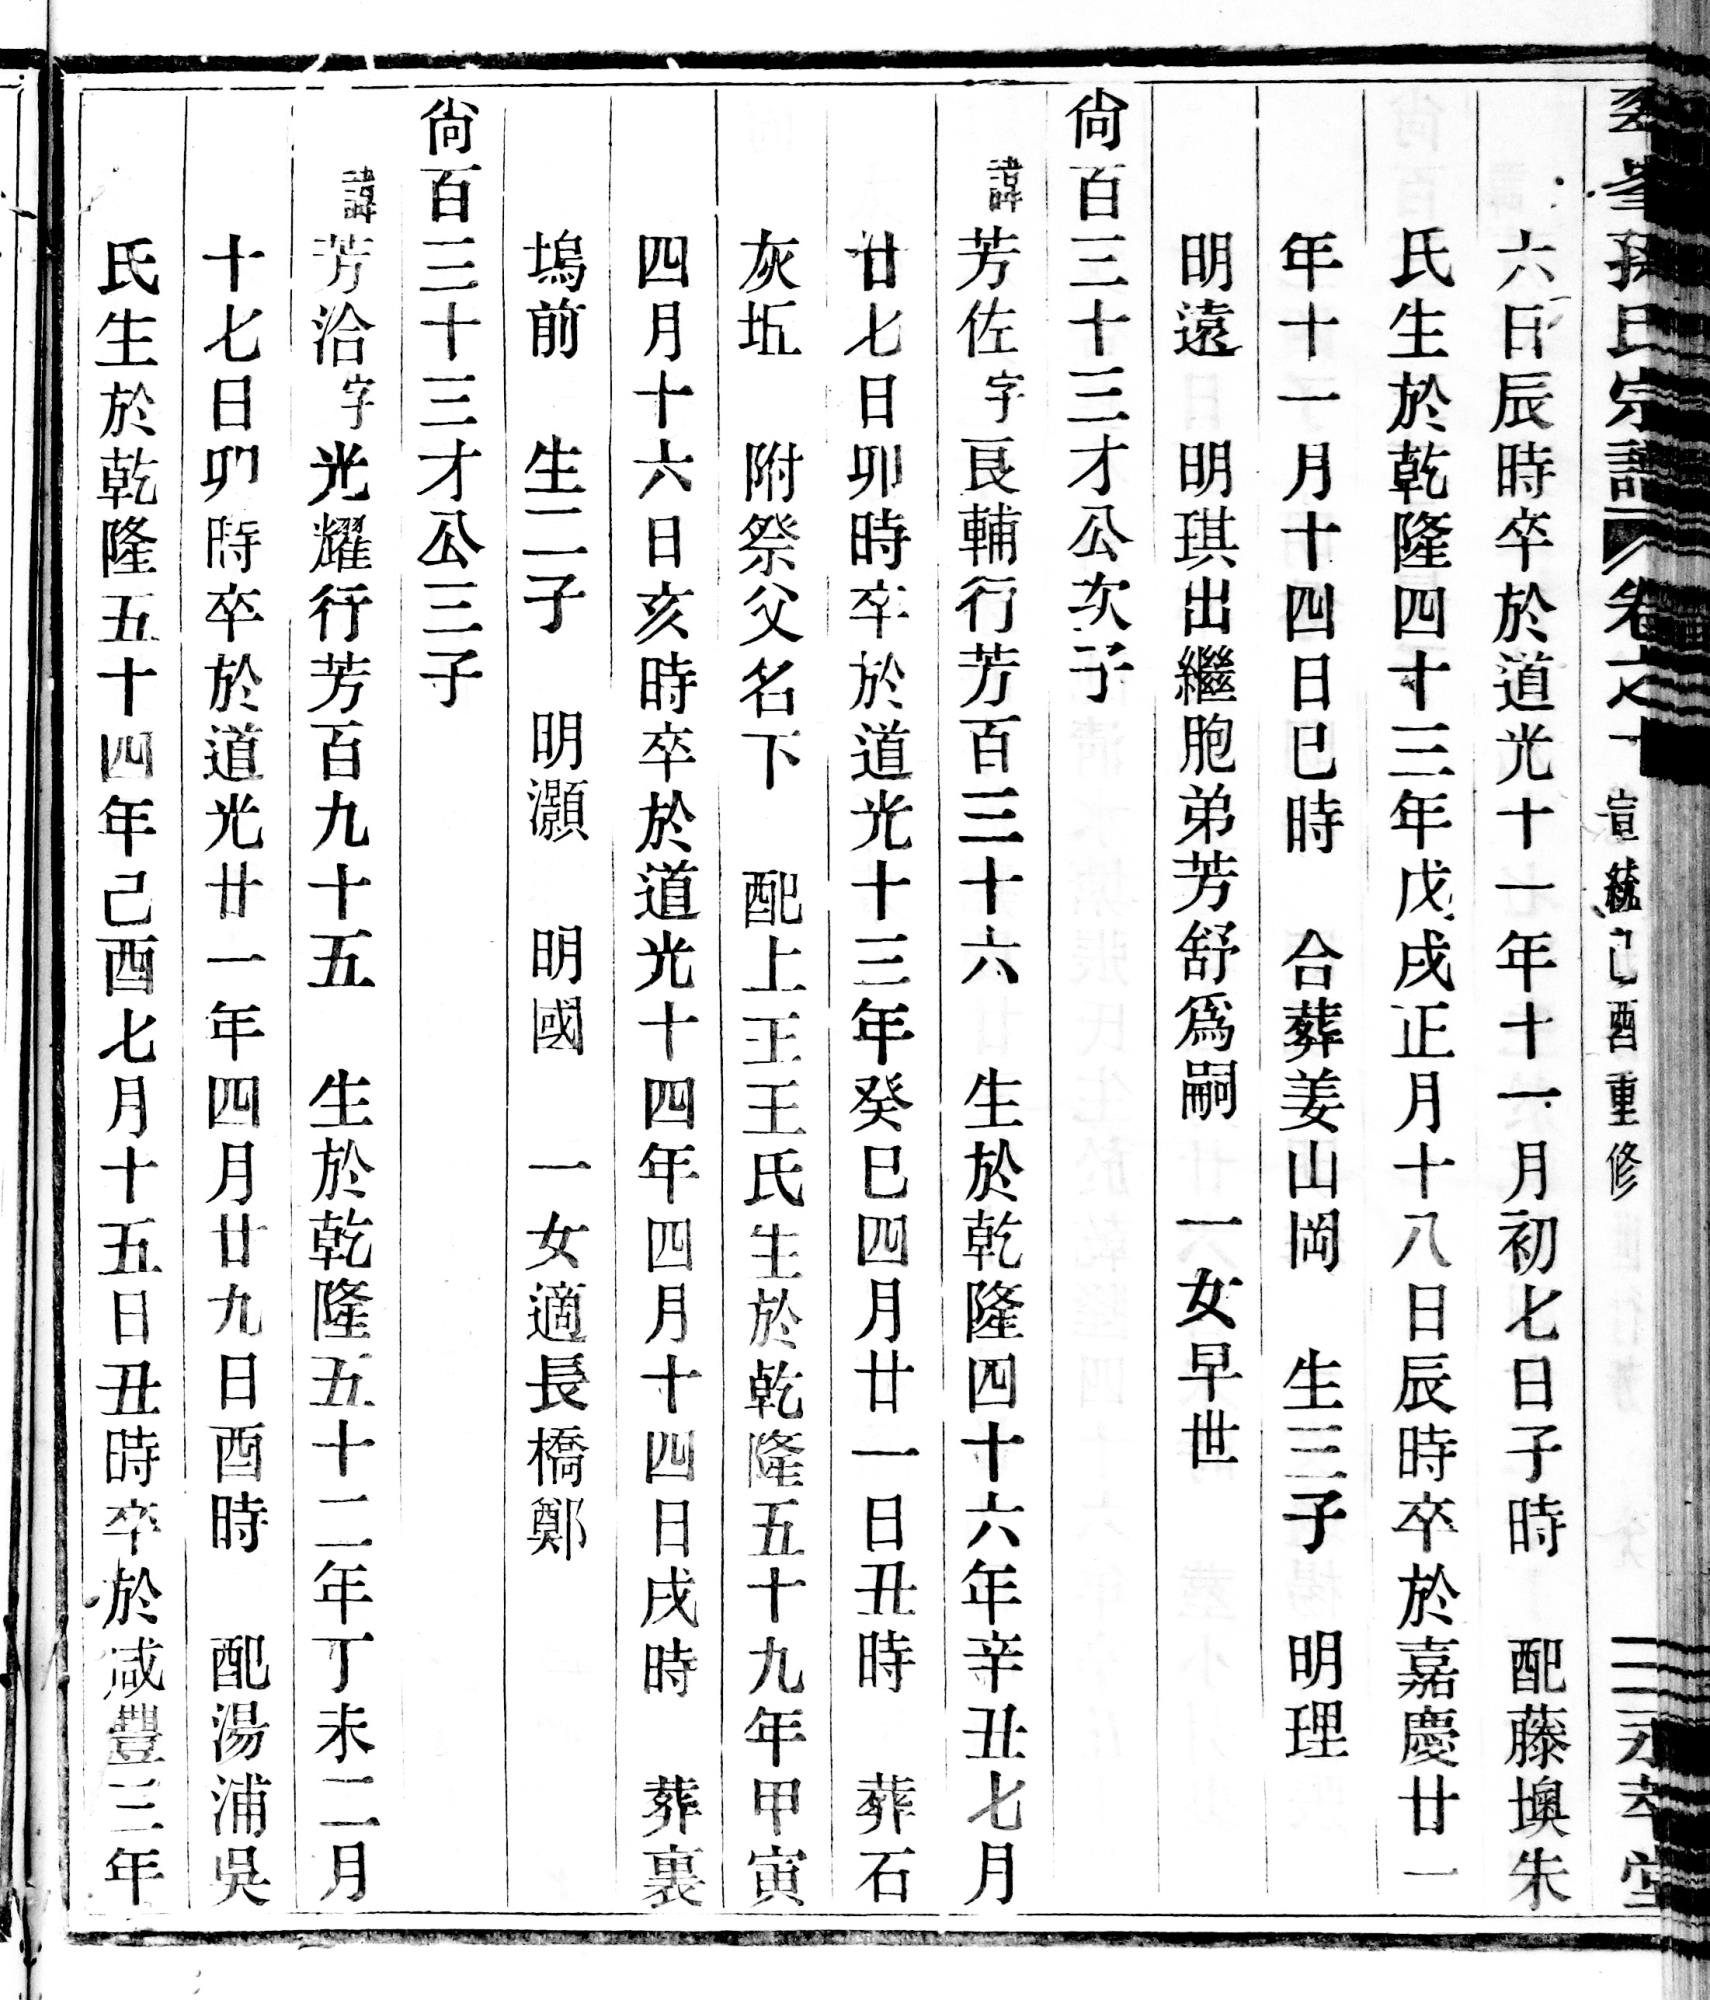 孫氏宗譜 卷之十 宣統己酉重修 永孝堂
六日辰時卒於道光十一年十一月初七日子時 配藤墺朱
氏生於乾隆四十三年戊戌正月十八日辰時卒於嘉慶廿一
年十一月十四日巳時 合葬姜山岡 生三子 明理
明遠 明琪出繼胞弟芳舒爲嗣 一女早世
尙百三十三才公次子
諱芳佐字良輔行芳百三十六 生於乾隆四十六年辛丑七月
廿七日卯時卒於道光十三年癸巳四月廿一日丑時 葬石
灰坵 附祭父名下 配上王王氏生於乾隆五十九年甲寅
四月十六日亥時卒於道光十四年四月十四日戌時 葬裏
塢前 生二子 明灝 明國 一女適長橋鄭
尙百三十三才公三子
諱芳洽字光耀行芳百九十五 生於乾隆五十二年丁未二月
十七日卯時卒於道光廿一年四月廿九日酉時 配湯浦吳
氏生於乾隆五十四年己酉七月十五日丑時卒於咸豐三年